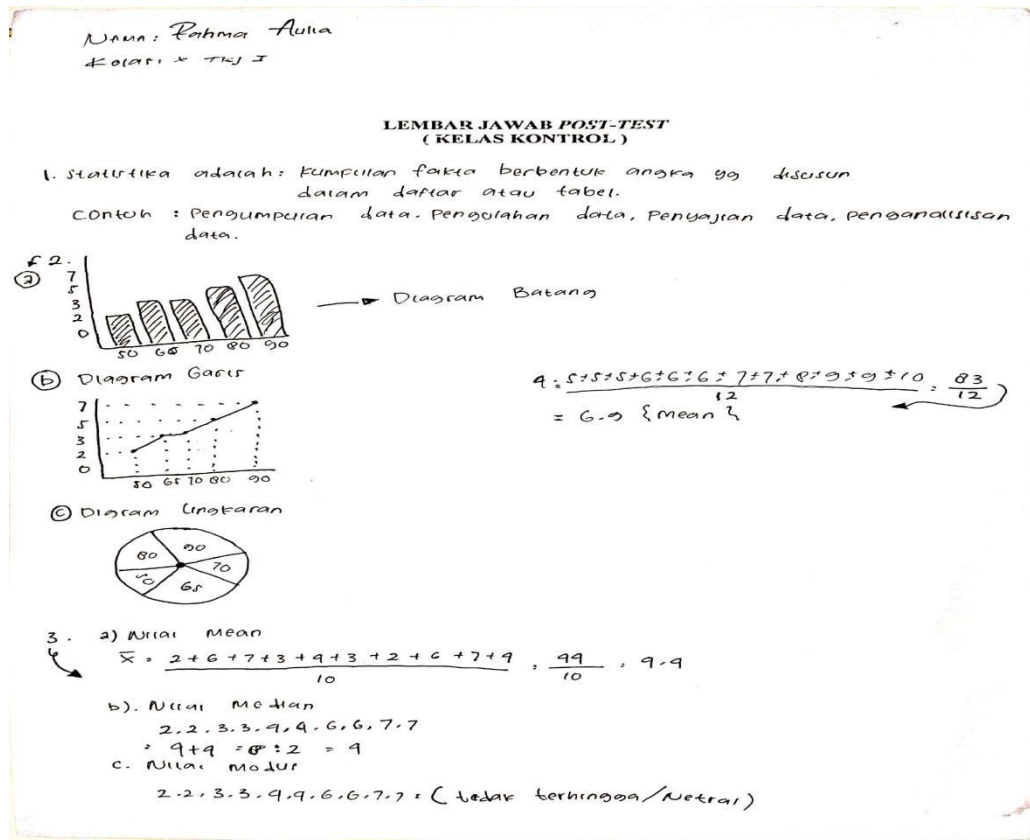 Nama: Rahma Aulia
Kelas: X TKJ I
LEMBAR JAWAB POST-TEST
( KELAS KONTROL )
1. Statistika adalah: Kumpulan fakta berbentuk angka yg disusun
dalam daftar atau tabel.
Contoh : Pengumpulan data. Pengolahan data, Penyajian data, penganalisisan
data.
2.
(a)
7
5
3
2
0
50 65 70 80 90
Diagram Batang
(b) Diagram Garis
7
5
3
2
0
50 65 70 80 90
4. 5+5+5+6+6+6+7+7+8+9+9+10 = 83
12 12
= 6.9 {mean}
(c) Digram lingkaran
80 90
70
50
65
3. a) Nilai Mean
x̄ = 2+6+7+3+4+3+2+6+7+4 = 44 = 4.4
10 10
b). Nilai Median
2.2.3.3.4,4.6,6,7.7
= 4+4 = 8 : 2 = 4
c. Nilai Modus
2.2.3.3.4.4.6.6.7.7 = (tedak terhingga/Netral)